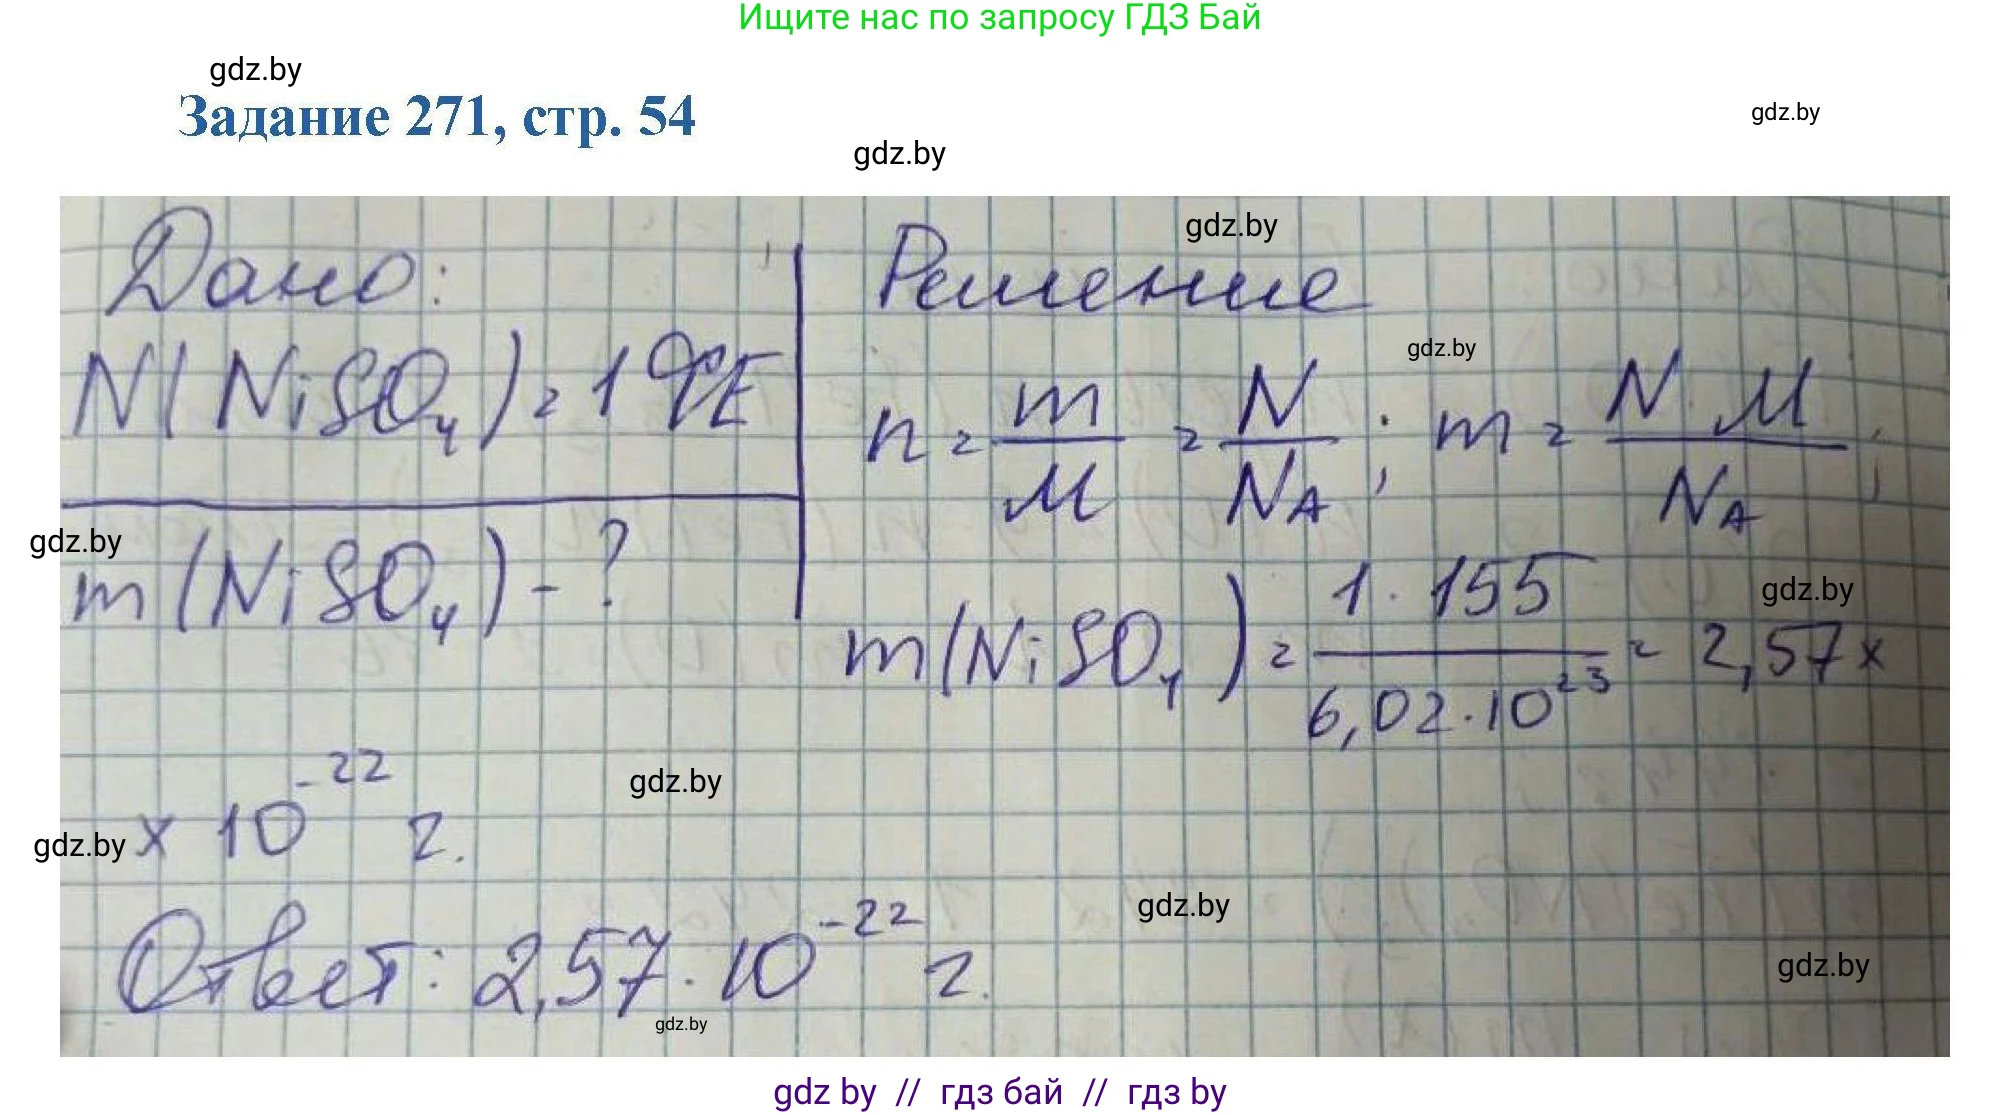 Ищите нас по запросу ГДЗ Бай
gdz.by
Задание 271, стр. 54
gdz.by
gdz.by
gdz.by
Дано:
Решение
N(NiSO₄) = 1 ФЕ
gdz.by
n = m/M = N/N_A ; m = N·M/N_A ;
gdz.by
m(NiSO₄) - ?
gdz.by
m(NiSO₄) = 1·155/6,02·10²³ = 2,57 х
х 10⁻²² г.
gdz.by
gdz.by
gdz.by
Ответ: 2,57·10⁻²² г.
gdz.by
gdz.by
gdz by // гдз бай // гдз by